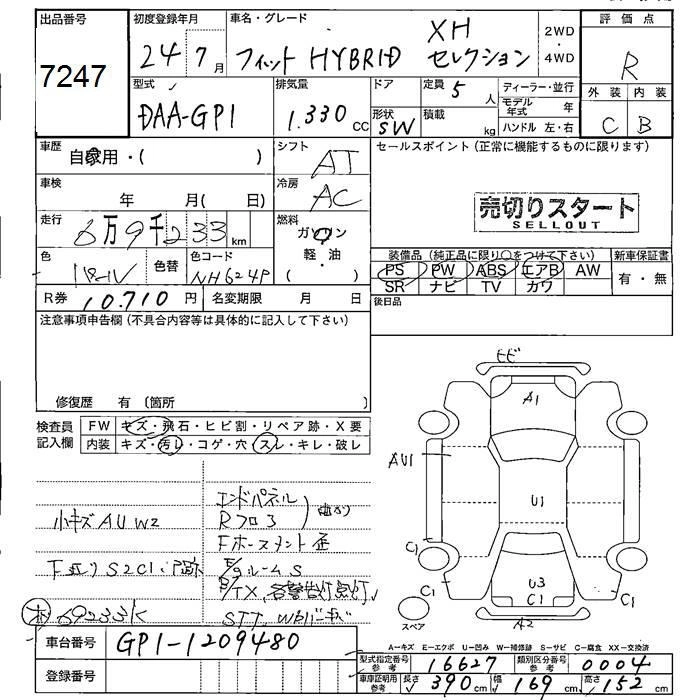 出品番号
7247
初度登録年月
24 7月
車名・グレード
フィット HYBRID XH セレクション
2WD
4WD
評価点
R
外装 内装
C B
型式
DAA-GP1
排気量
1.330 CC
ドア
形状
SW
定員
5 人
積載
kg
ディーラー・並行
モデル年式 年
ハンドル 左・右
車歴
自家用・( )
シフト
AT
セールスポイント (正常に機能するものに限ります)
売切りスタート
SELLOUT
車検
年 月( 日)
冷房
AC
走行
6万9千233km
燃料
ガソリン
軽・油
( )
色
パールW
色替
色コード
NH624P
装備品 (純正品に限り○をつけて下さい)
PS PW ABS エアB AW
SR ナビ TV カワ
新車保証書
有・無
R券 10.710円
名変期限 月 日
後日品
注意事項申告欄 (不具合内容等は具体的に記入して下さい)
修復歴 有 (箇所 )
検査員記入欄
FW キズ・飛石・ヒビ割・リペア跡・X要
内装 キズ・汚れ・コゲ・穴・スレ・キレ・破レ
小キズ AU W2
エンドパネル
Rフロア
曲がり
Fホースメント歪
E/gルームS
下廻り S2C1・P跡
P/TX, 各警告灯点灯
69233K
車台番号
GP1-1209480
登録番号
ヒビ
A1
AU1
U1
C1
C1
U3
C1
C1
A2
スペア
A−キズ E−エクボ U−凹み W−補修跡 S−サビ C−腐食 XX−交換済
型式指定番号 参考 16627
類別区分番号 参考 0004
車庫証明用 参考 長さ 390cm 幅 169cm 高さ 152cm